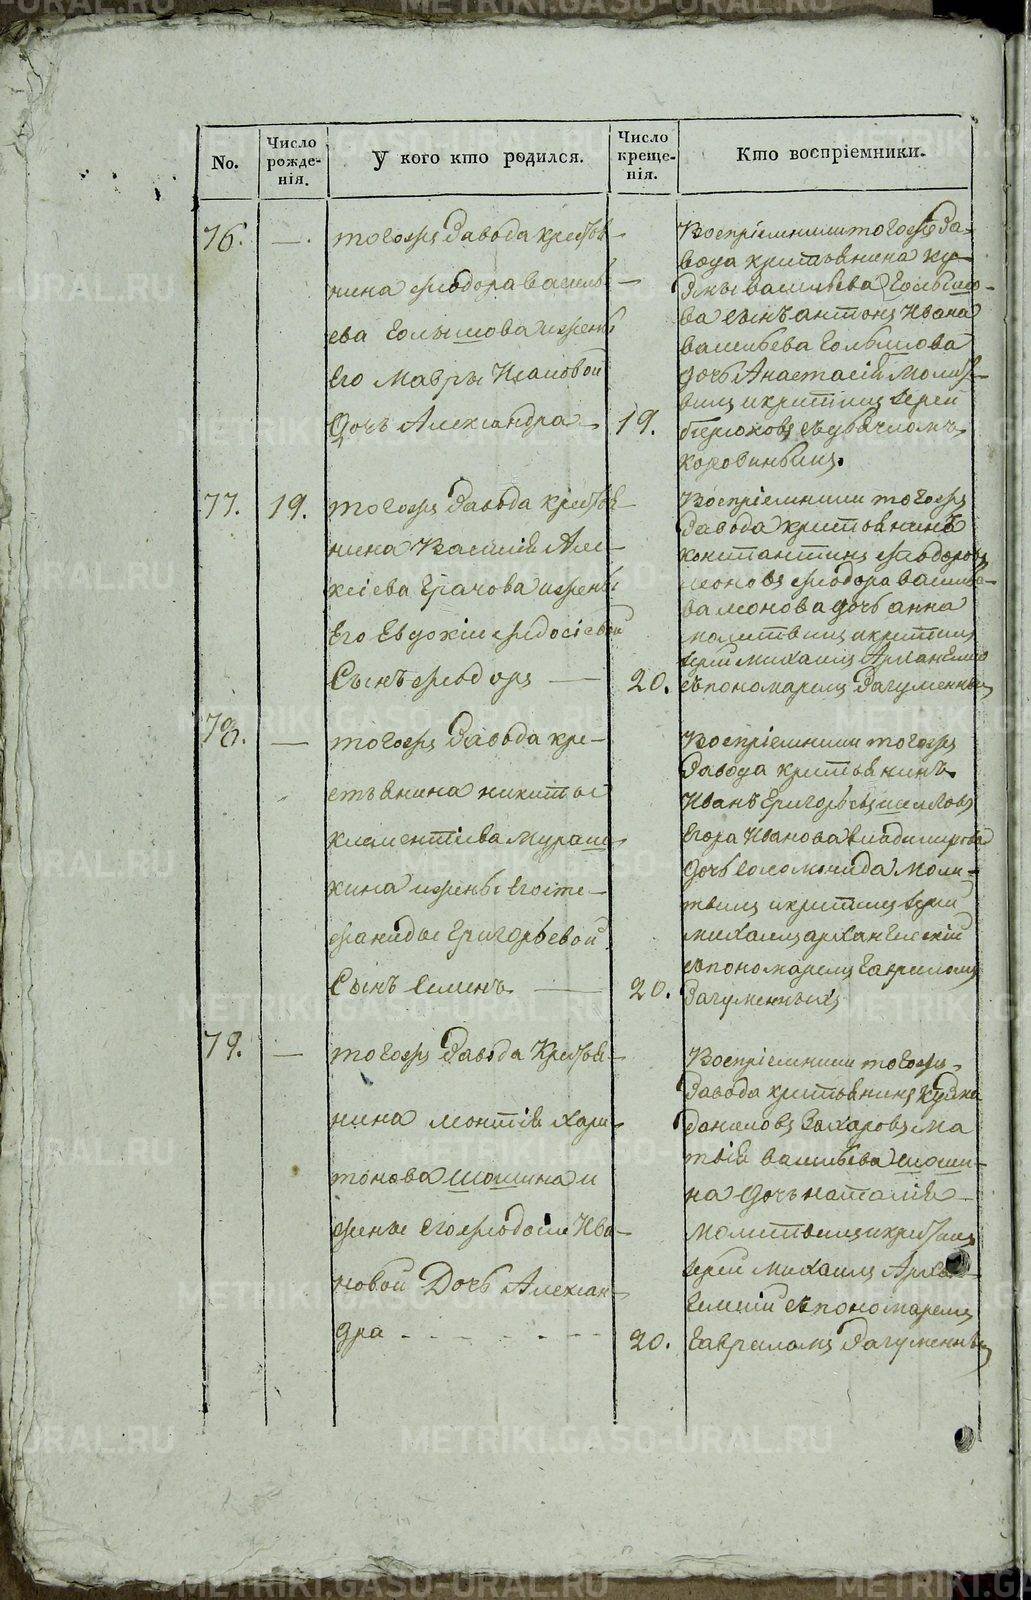 No.
Число рожде-нія.
У кого кто родился.
Число креще-нія.
Кто воспріемники.
76. —.
тогожъ Завода крестья-
нина Ѳеодора Василь-
ева Голышова и жены
Его Мавры Исаковой
Дочь Александра
19.
Воспріемники тогожъ За-
вода крестьянина Ку-
змы Васильева Голышо-
ва сынъ Антонъ Ивана
Васильева Голышова
дочь Анастасія Молит-
вилъ и крестилъ Іерей
Бирюковъ съ дьячкомъ
77. 19.
тогожъ Завода крестья-
нина Василія Але-
ксіева Грачова и жены
Его Евдокіи Ѳедосіевой
Сынъ Ѳеодоръ —
20.
Воспріемники тогожъ
Завода крестьянинъ
Константинъ Ѳеодоровъ
Леоновъ Ѳеодора Василье-
ва Леонова дочь Анна
молитвилъ и крестилъ
Іерей Михаилъ Арханг
съ пономаремъ
78. —
тогожъ Завода кре-
стьянина Никиты
Климентіева Мураш-
кина и жены Его Сте-
фаниды Григорьевой
Сынъ Семенъ. —
20.
Воспріемники тогожъ
Завода крестьянинъ
Иванъ Григорьевъ
Егора Иванова Владимірова
дочь Соломонида Моли-
твилъ и крестилъ Іерей
Михаилъ Архангельскій
съ пономаремъ Гавриломъ
79. —
тогожъ Завода Крестья-
нина Леонтія Хари-
тонова Шошина и
жены его Ѳеодосіи Ива-
новой Дочь Алексан-
дра - - - - - -
20.
Воспріемники тогожъ
Завода крестьянинъ Кузма
Даниловъ Захаровъ Ма
твія Васильева Шоши-
на дочь Наталія
Молитвилъ и крестилъ
Іерей Михаилъ Архан-
гельскій съ пономаремъ
Гавриломъ
METRIKI.GASO-URAL.RU